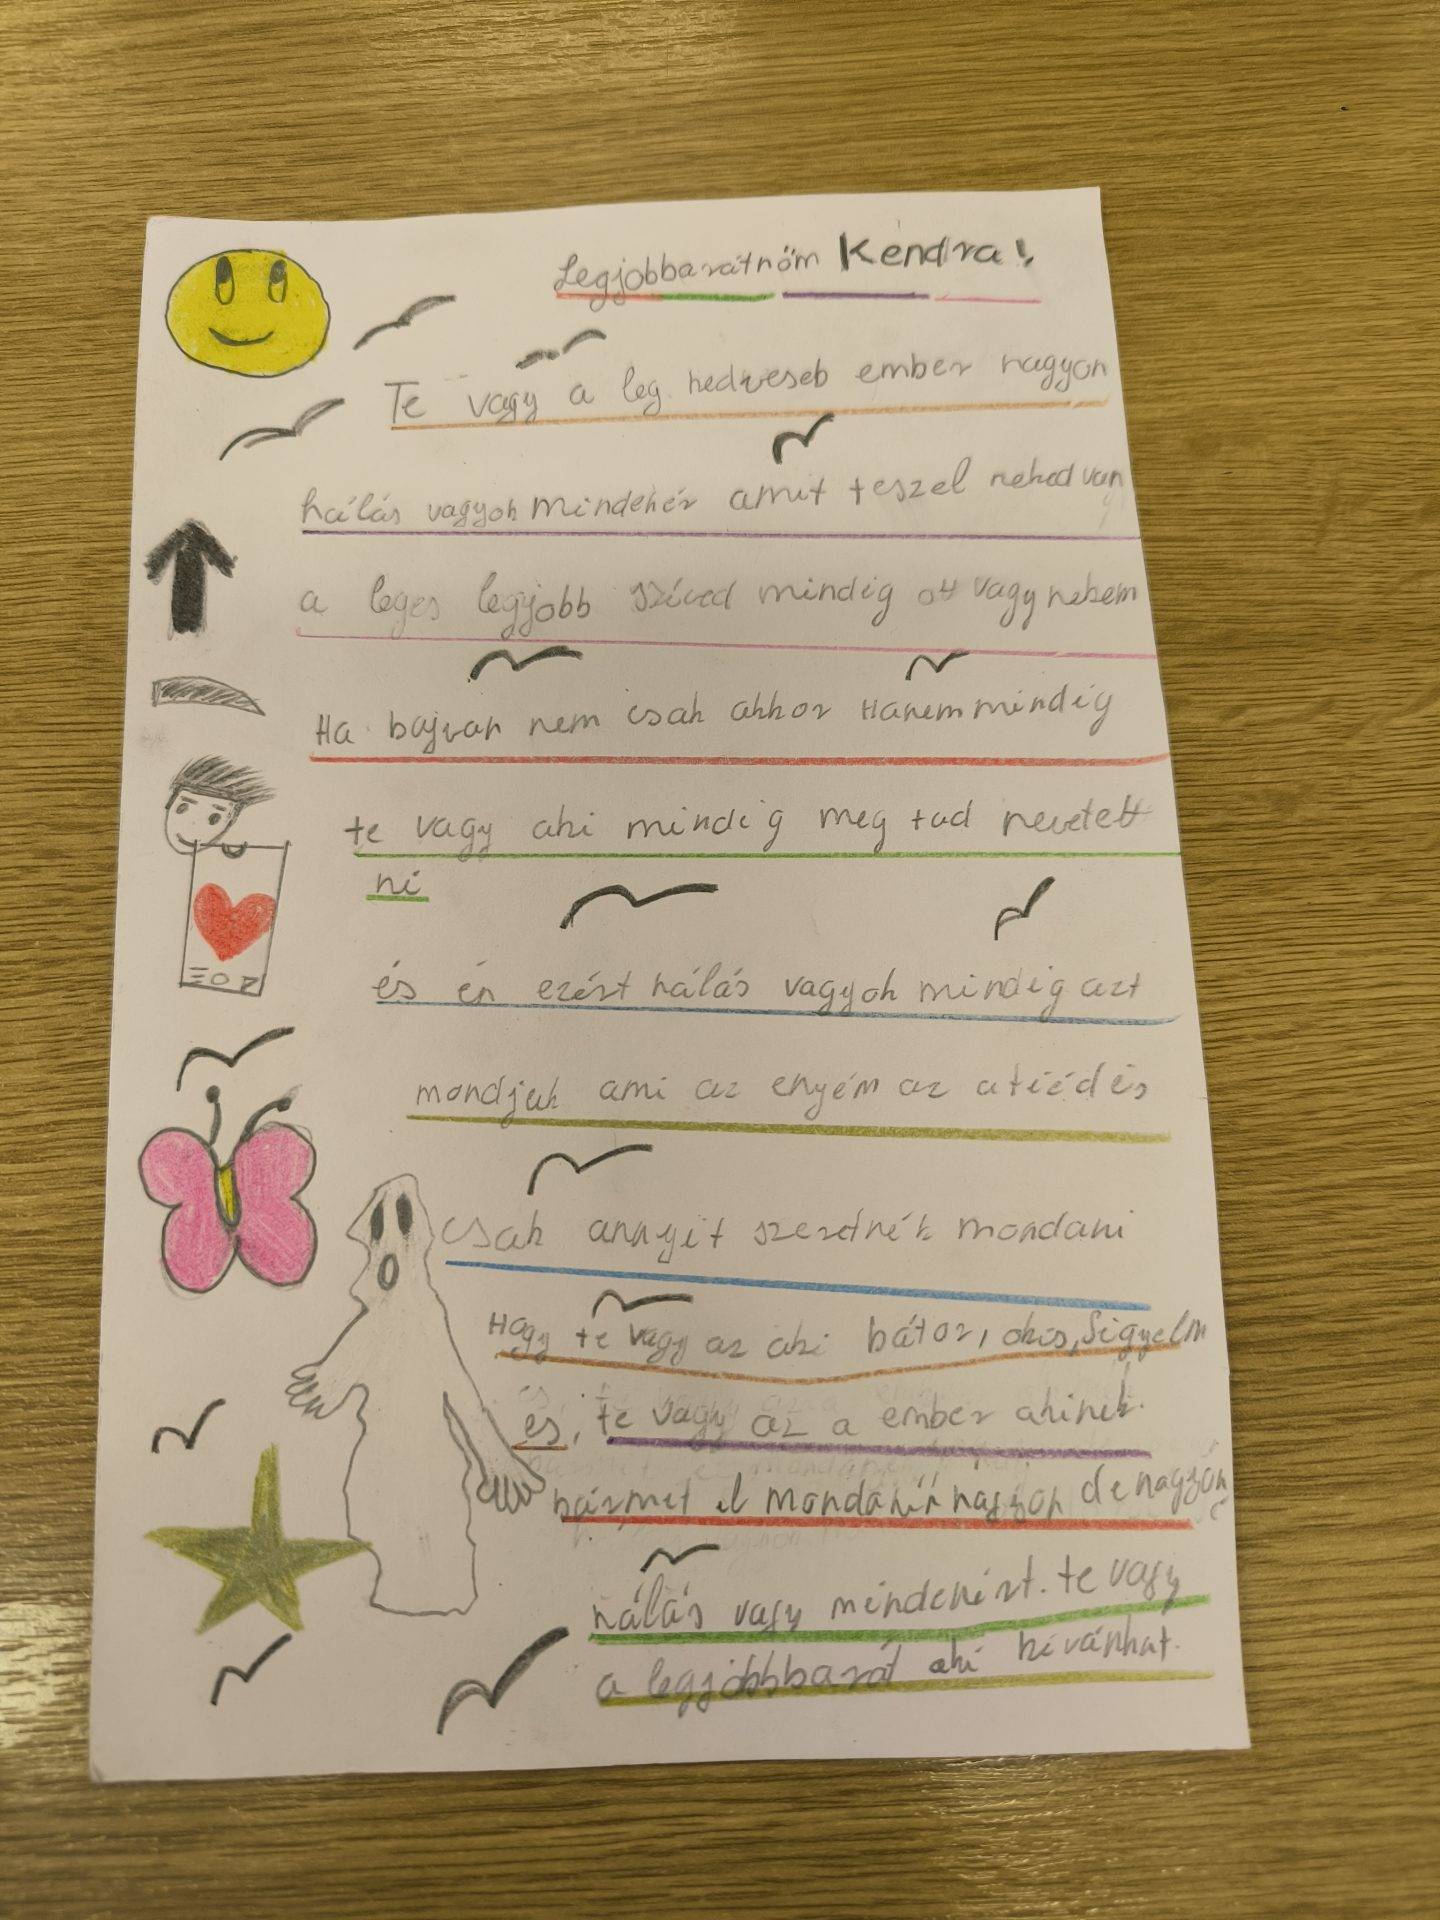 Legjobbarátnőm Kendra!
Te vagy a leg kedveseb ember nagyon
hálás vagyok mindenér amit teszel neked van
a leges legjobb szíved mindig ott vagy nekem
Ha bajvan nem csak akkor Hanem mindig
te vagy aki mindig meg tud nevetett
ni
és én ezért hálás vagyok mindig azt
mondjuk ami az enyém az a tiéd és
csak annyit szeretnék mondani
Hogy te vagy az aki bátor, okos, figyelm
es, te vagy az a ember akinek
bármit el mondanék nagyon de nagyon
hálás vagy mindenért. te vagy
a legjobbbarát aki kívánhat.